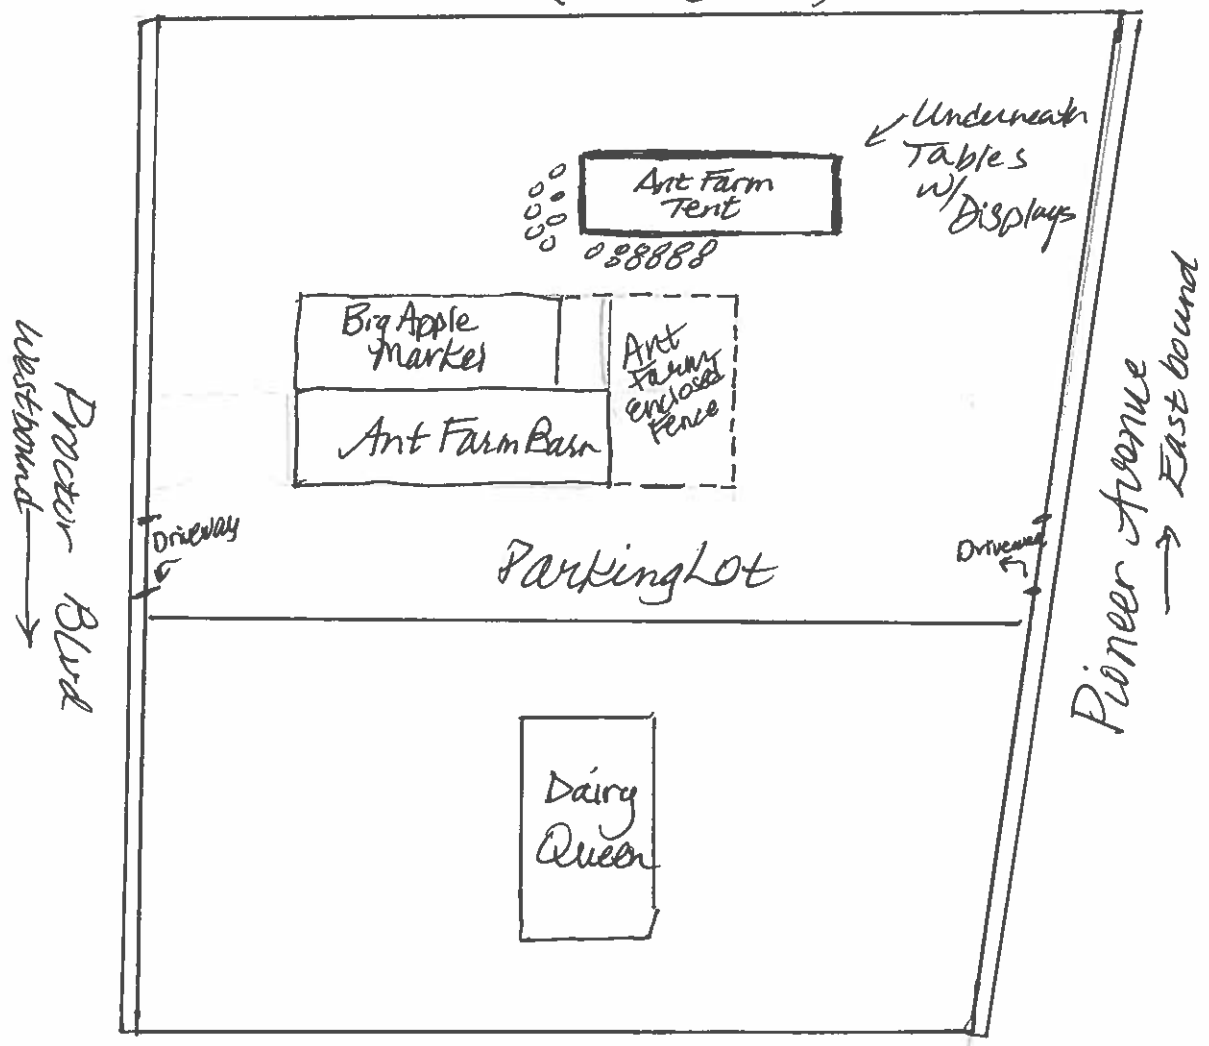 Underneath
Tables
w/
Displays
Ant Farm
Tent
Big Apple
Market
Ant
Farm
enclosed
Fence
Ant Farm Barn
Driveway
Driveway
Parking Lot
Proctor Blvd
Westbound
Pioneer Avenue
East bound
Dairy
Queen